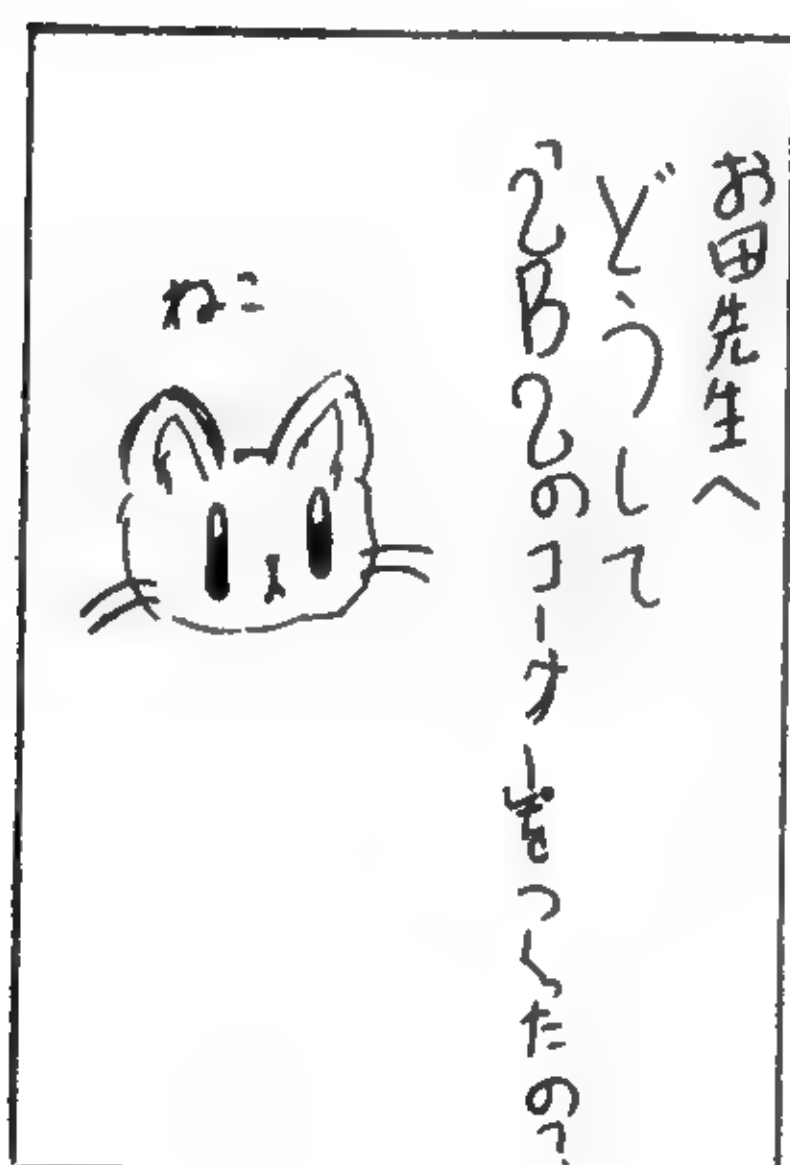 お田先生へ
どうして
「2B2のコーナーをつくたの?
ねこ